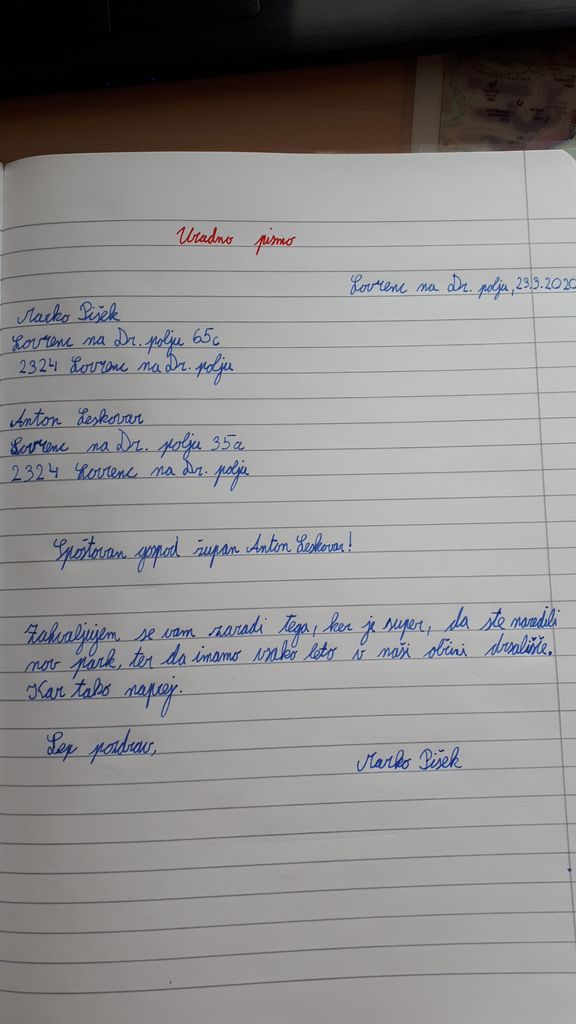 Uradno pismo
Lovrenc na Dr. polju, 23.3.2020
Marko Pišek
Lovrenc na Dr. polju 65c
2324 Lovrenc na Dr. polju
Anton Leskovar
Lovrenc na Dr. polju 35a
2324 Lovrenc na Dr. polju
Spoštovan gospod župan Anton Leskovar!
Zahvaljujem se vam zaradi tega, ker je super, da ste naredili
nov park, ter da imamo vsako leto v naši občini drsališče.
Kar tako naprej.
Lep pozdrav,
Marko Pišek